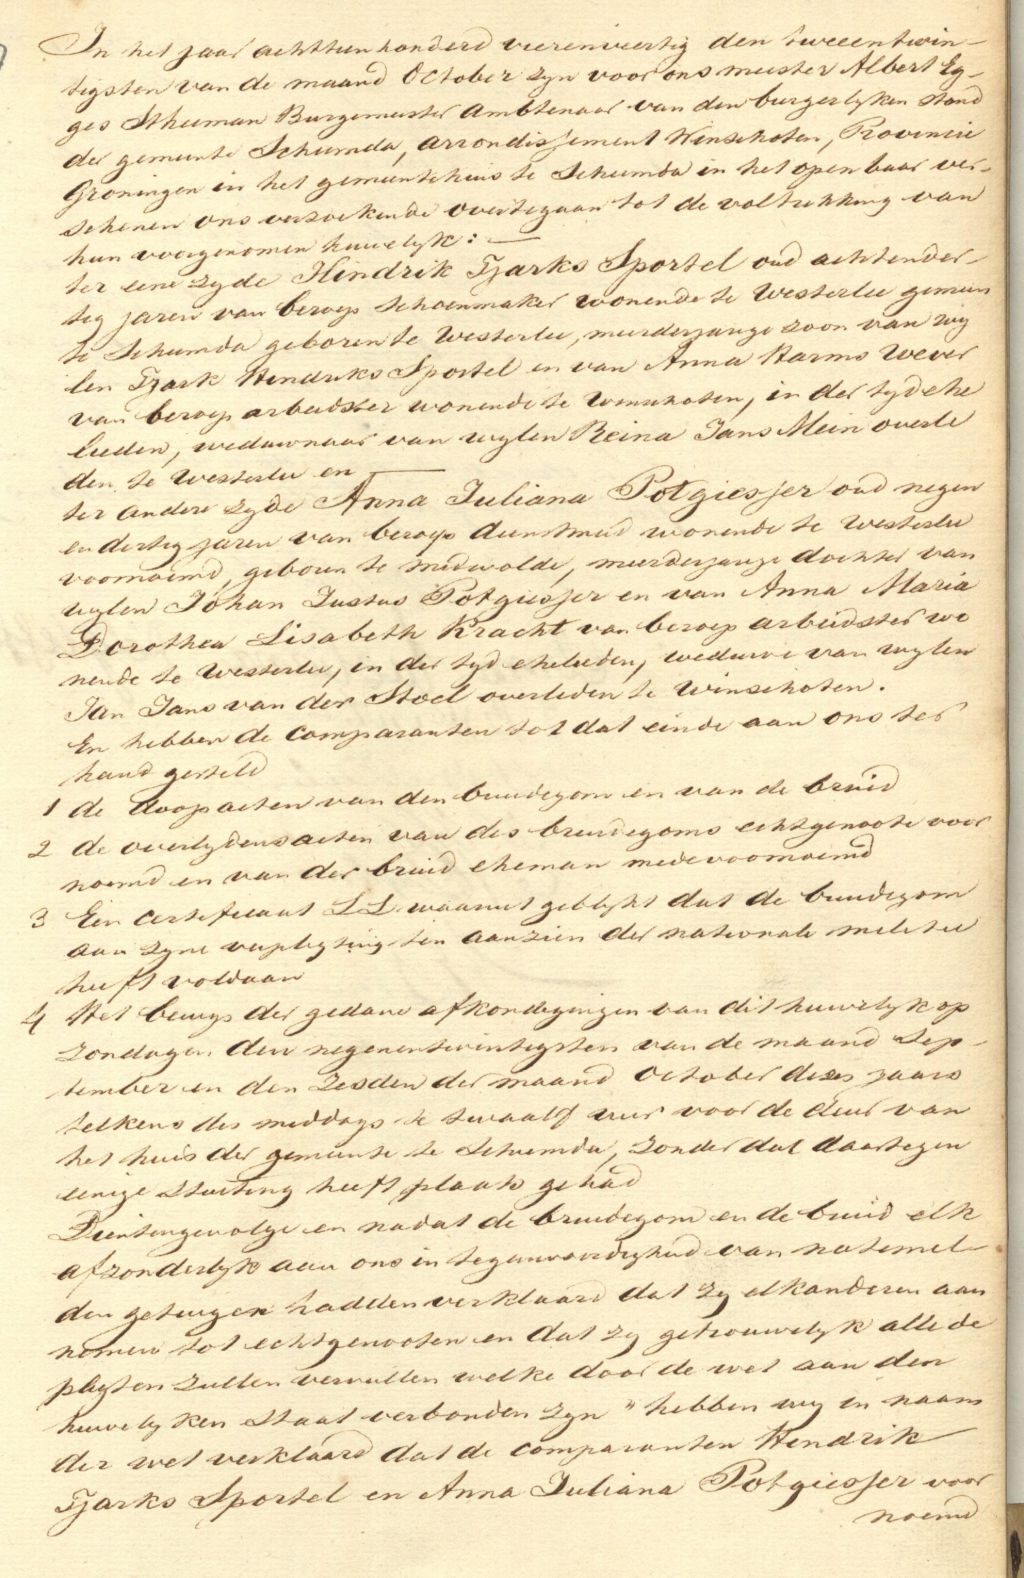 In het jaar achttienhonderd vierenveertig den tweeentwin-
tigsten van de maand October zyn voor ons meester Albert Eg-
ges Stheeman Burgemeester Ambtenaar van den burgerlyken stand
der gemeente Scheemda, arrondissement Winschoten, Provincie
Groningen in het gemeentehuis te Scheemda in het openbaar ver-
schenen ons verzoekende overtegaan tot de voltrekking van
hun voorgenomen huwelyk: —
ter eene zyde Hindrik Tjarks Sportel oud achtender-
tig jaren van beroep schoenmaker wonende te Westerlee gemeen
te Scheemda geboren te Westerlee, meerderjarige zoon van wy
len Tjark Hendriks Sportel en van Anna Harms Wever
van beroep arbeidster wonende te Winschoten, in der tyd ehe
lieden, weduwnaar van wylen Reina Jans Mein overle
den te Westerlee en —
ter andere zyde Anna Juliana Potgiesser oud negen
en dertig jaren van beroep dienstmeid wonende te Westerlee
voornoemd, geboren te Midwolde, meerderjarige dochter van
wylen Johan Justus Potgiesser en van Anna Maria
Dorothea Lisabeth Kracht van beroep arbeidster wo
nende te Westerlee, in der tyd ehelieden, weduwe van wylen
Jan Jans van der Stoel overleden te Winschoten.
En hebben de comparanten tot dat einde aan ons ter
hand gesteld
1 de doopacten van den bruidegom en van de bruid
2 de overlydensacten van des bruidegoms echtgenoote voor
noemd en van der bruid eheman medevoornoemd
3 Een certificaat LL waaruit geblykt dat de bruidegom
aan zyne verpligting ten aanzien der nationale militie
heeft voldaan
4 Het bewys der gedane afkondigingen van dit huwelyk op
Zondagen den negenentwintigsten van de maand Sep-
tember en den zesden der maand October dezes jaars
telkens des middags te twaalf uur voor de deur van
het huis der gemeente te Scheemda, zonder dat daartegen
eenige stuiting heeft plaats gehad
Dientengevolge en nadat de bruidegom en de bruid elk
afzonderlyk aan ons in tegenwoordigheid van natemel-
den getuigen hadden verklaard dat zy elkanderen aan
nomen tot echtgenooten en dat zy getrouwelyk alle de
pligten zullen vervullen welke door de wet aan den
huwelyken staat verbonden zyn" hebben wy in naam
der wet verklaard dat de comparanten Hendrik
Tjarks Sportel en Anna Juliana Potgiesser voor
noemd